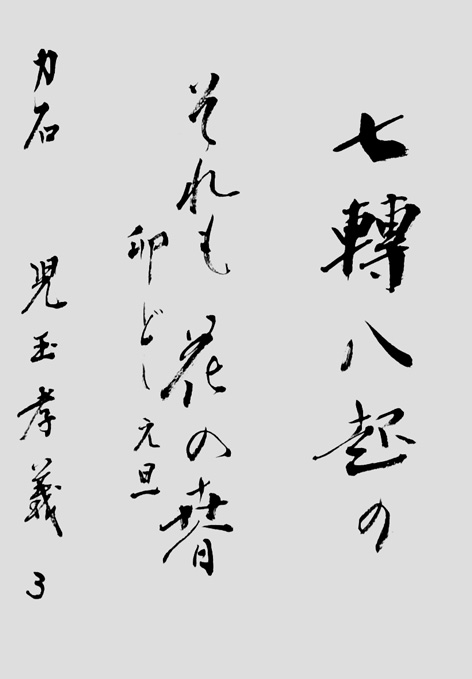 七轉八起の
それも花の替
卯どし元旦
力石 児玉孝義 3